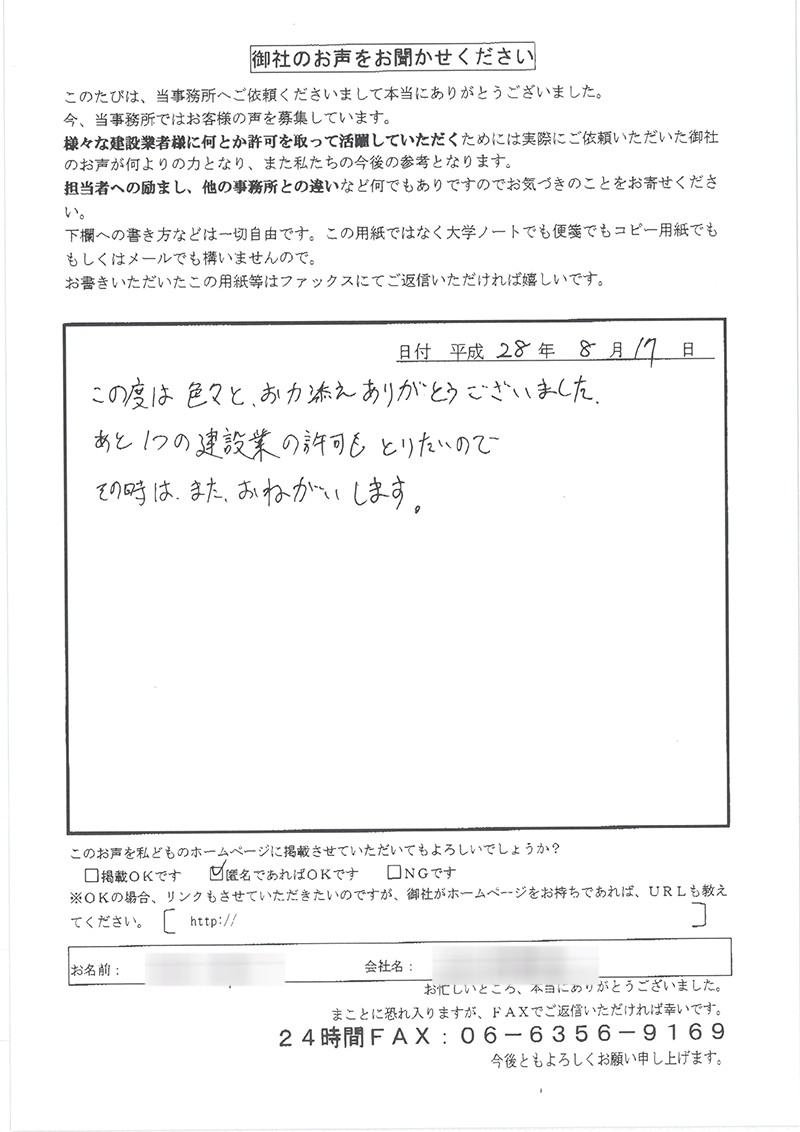 御社のお声をお聞かせください
このたびは、当事務所へご依頼くださいまして本当にありがとうございました。
今、当事務所ではお客様の声を募集しています。
様々な建設業者様に何とか許可を取って活躍していただくためには実際にご依頼いただいた御社
のお声が何よりの力となり、また私たちの今後の参考となります。
担当者への励まし、他の事務所との違いなど何でもありですのでお気づきのことをお寄せくださ
い。
下欄への書き方などは一切自由です。この用紙ではなく大学ノートでも便箋でもコピー用紙でも
もしくはメールでも構いませんので。
お書きいただいたこの用紙等はファックスにてご返信いただければ嬉しいです。
日付 平成 28 年 8 月 17 日
この度は色々と、お力添えありがとうございました.
あと1つの建設業の許可もとりたいので
その時は.また、おねがいします。
このお声を私どものホームページに掲載させていただいてもよろしいでしょうか？
□掲載ＯＫです ☑匿名であればＯＫです □ＮＧです
※ＯＫの場合、リンクもさせていただきたいのですが、御社がホームページをお持ちであれば、ＵＲＬも教え
てください。 [ http:// ]
お名前： 会社名：
お忙しいところ、本当にありがとうございました。
まことに恐れ入りますが、ＦＡＸでご返信いただければ幸いです。
２４時間ＦＡＸ：０６－６３５６－９１６９
今後ともよろしくお願い申し上げます。